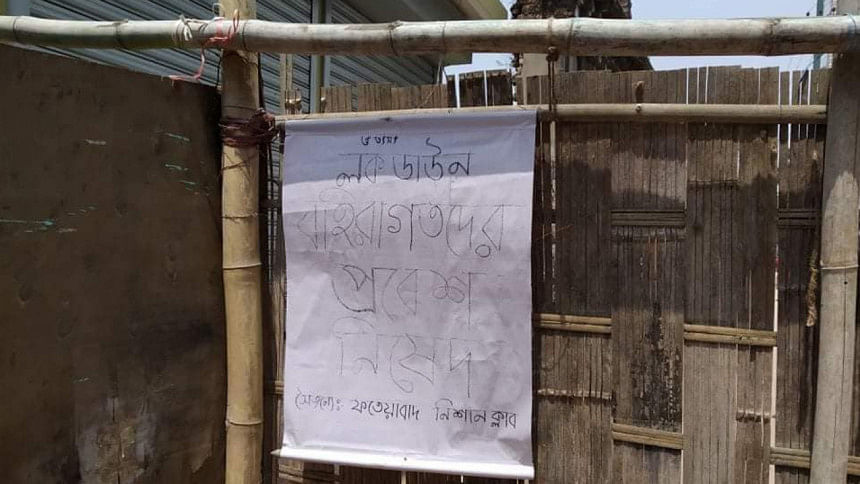 লক ডাউন
বহিরাগতদের
প্রবেশ
নিষেদ
সৌজন্যেঃ ফতেয়াবাদ নিশান ক্লাব